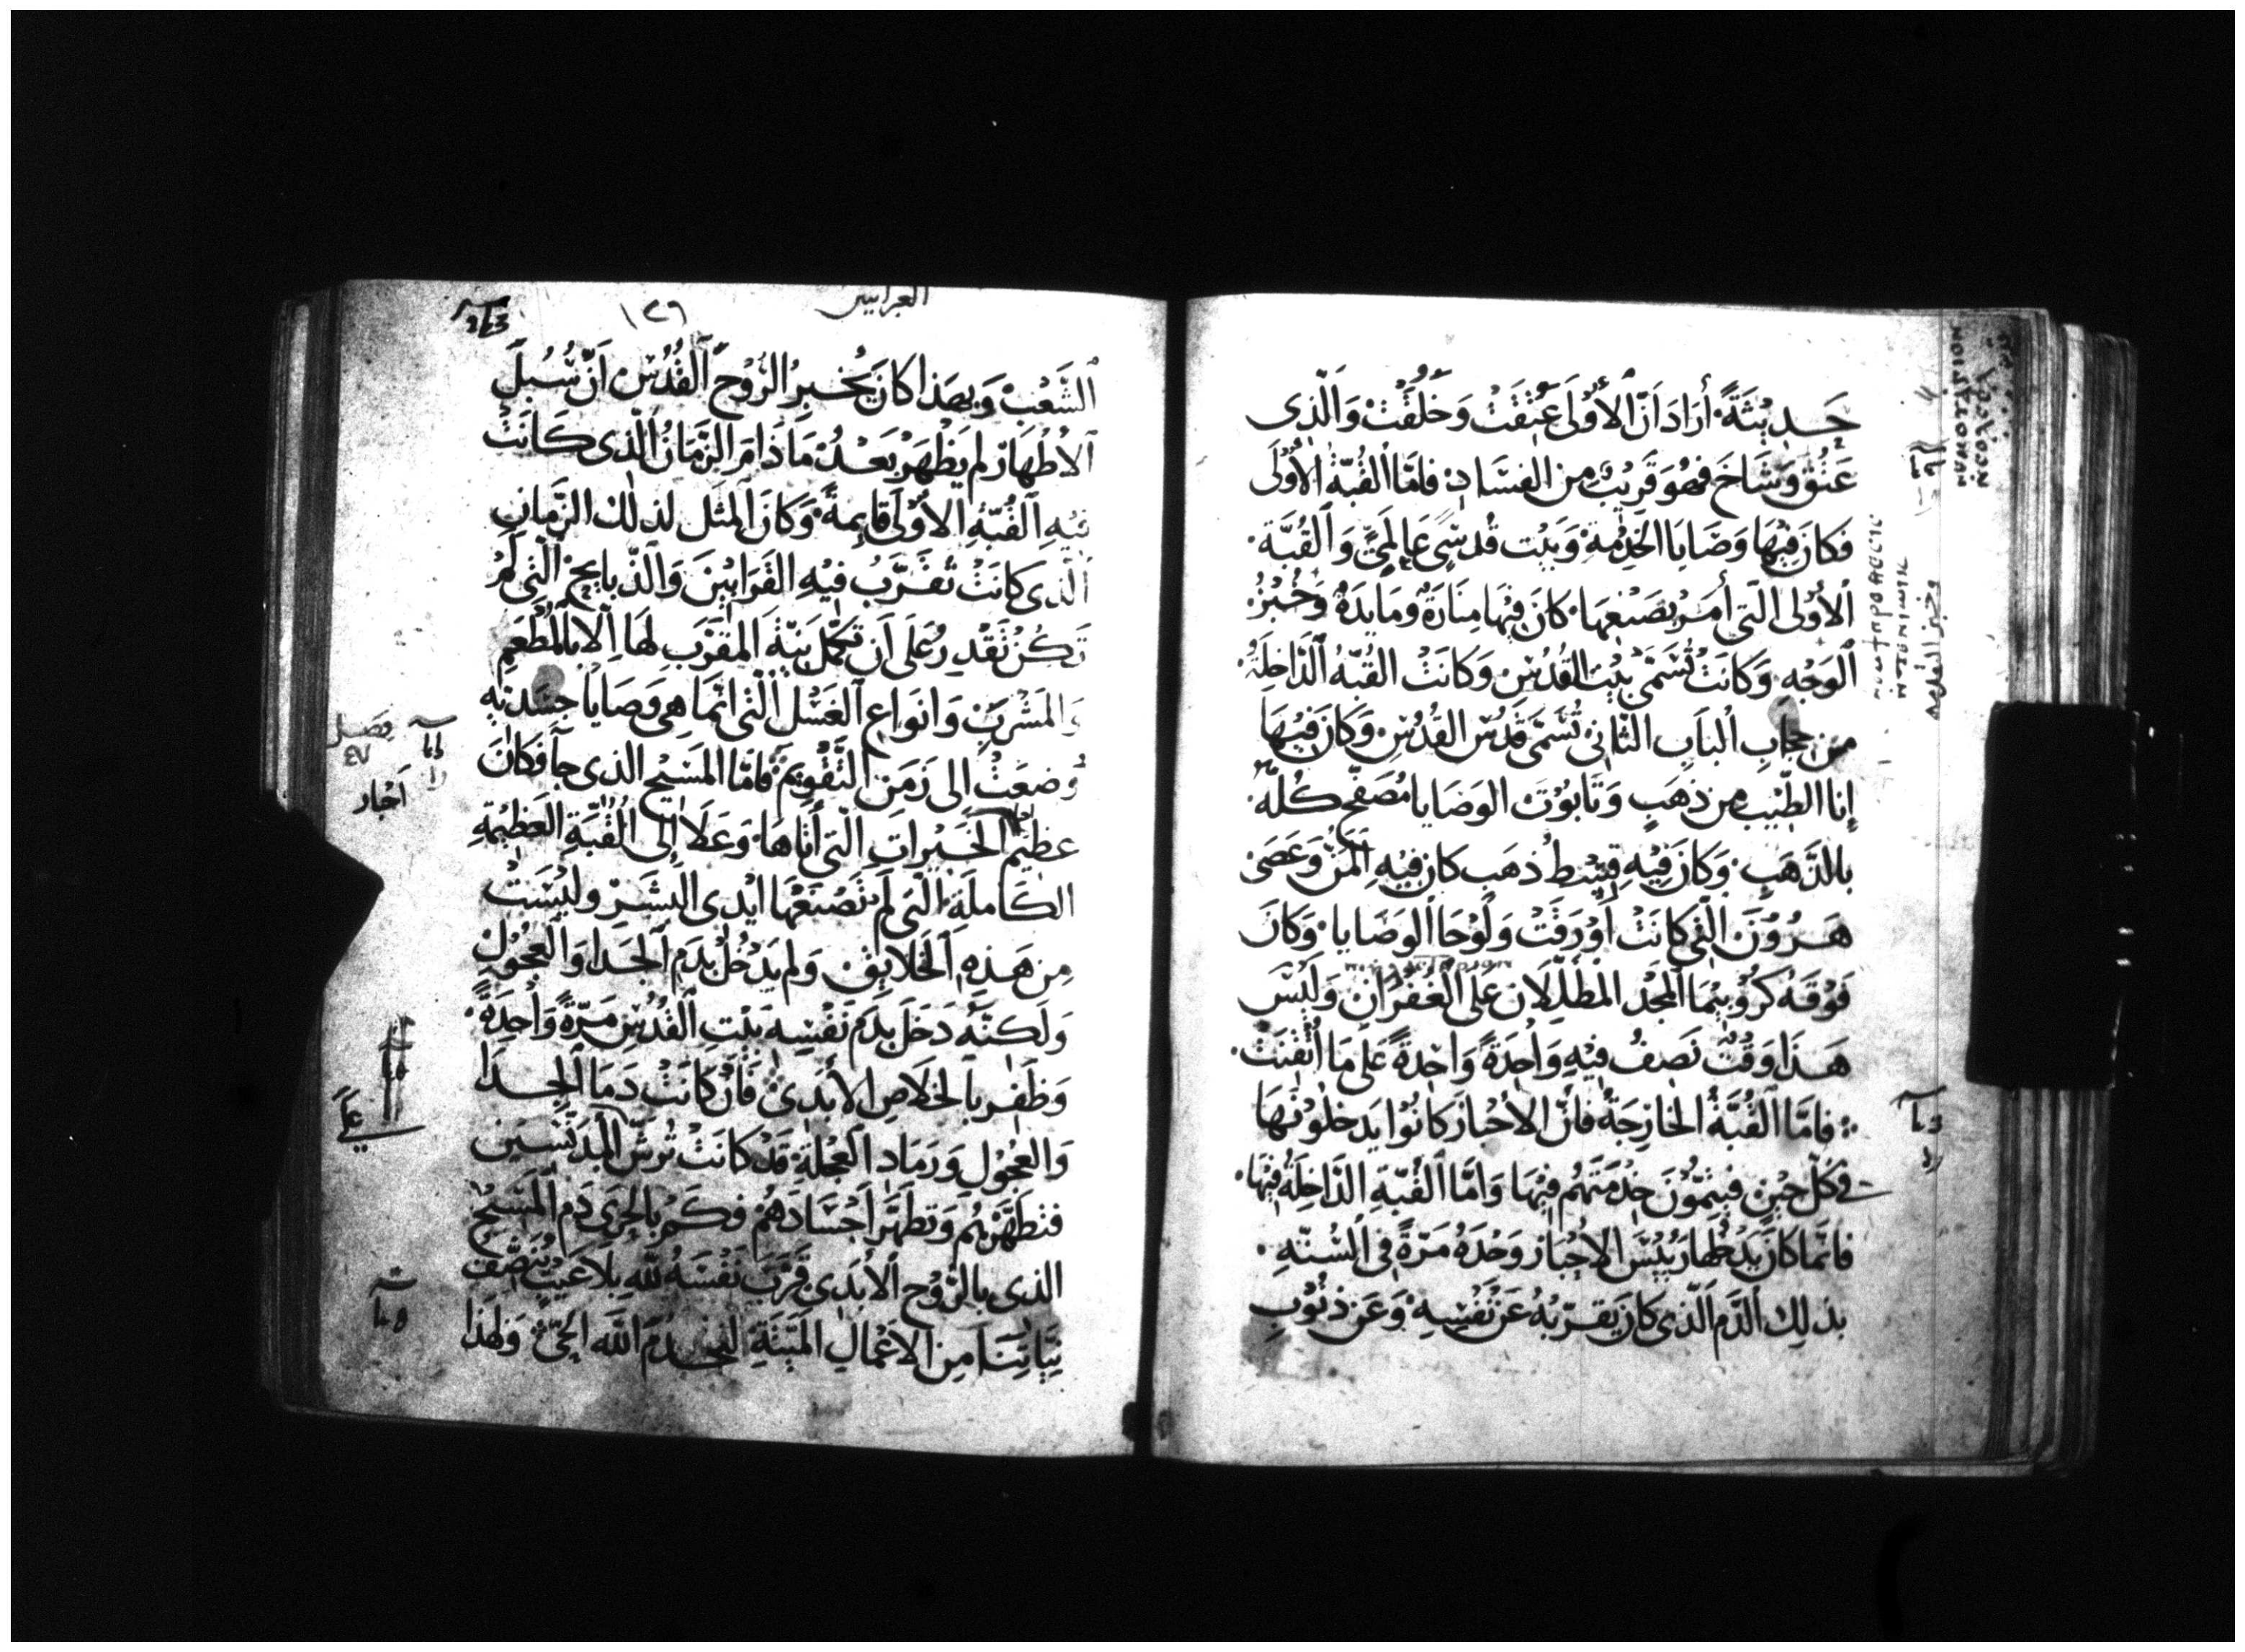 حَدِيْثَةً. أرَادَ اَنّ الأوْلَى عَتِقَتْ وَخَلَقَتْ وَالَّذِى
عَتُقَ وَشَاخَ فهُوَ قَرِيْبٌ مِن الفسَادِ. فامّا القُبّةُ الأوْلَى
فكانَ فِيْهَا وَصَايَا الخِدْمةِ وَبَيْت قُدسِىّ عَالمِىّ وَالقُبّة.
الأوْلى الّتى أمَرَ بصَنْعِهَا. كانَ فِيْهَا مَنَارَةٌ وَمَايدَةٌ وَخُبْزُ.
الوَجْهِ. وَكانَتْ تُسَمّى بَيْتَ القُدُسِ وَكانَتْ القُبّهُ الدّاخِلَهُ.
مِن حِجَابِ البَابِ الثّانِى تُسَمّى قدُسَ القُدُسِ. وَكانَ فِيْهَا
إنَا الطّيْب مِن ذَهَبٍ وَتَابُوت الوَصَايا مُصَفّح كُلّهُ.
بالذّهَبِ. وَكانَ فِيْهِ قِسْط ذهَب كان فِيْهِ المَنّ وَعَصَى
هَرُوْنَ الّتى كانَتْ أوْرَقَتْ وَلَوْحَا الوَصَايا. وَكانَ
فَوْقَهُ كرُوْبِيْمَا المَجْد المُظَلّلان عَلى الغُفْرَان. وَلَيْسَ
هَذَا وَقتٌ نَصِفُ فِيْهِ وَاحِدَةً وَاحِدةً عَلى مَا أُتْقِنَتْ.
فامّا القُبّةُ الخارِجَةُ فانّ الاحْبارَ كانُوْا يَدخلُوْنَهَا
فى كُلّ حِيْنٍ. فيتِمّوْنَ خِدْمَتَهُم فِيْهَا. وَامّا القُبّةِ الدّاخِلَةُ فِيْهَا.
فانّمَا كانَ يَدْخُلهَا رَيْيسَ الاحْبَارِ وَحْدَهُ مَرّةً فِى السّنَةِ.
بذلِك الدّم الّذى كانَ يقرّبُهُ عَن نَفْسِهِ وَعَن ذنُوْبِ
العبرانيين
الشّعْبْ وَبهَذا كانَ يُخْبِرُ الرّوْحِ القُدُسْ. اَنّ سُبُلَ
الاطهَار لم يَظْهَرْ بَعْدُ مَا ذَامَ الزّمَانُ الّذى كَانَتْ
فيْهِ القُبّهِ الأوْلَى قايمةً. وَكانَ المَثَل لذلك الزّمَانِ
الّذى كانَتْ تُقَرّبُ فيْهِ القرَابِيْنَ وَالذّبايحْ الّتى لَمْ
تَكُنْ تَقْدِرُ عَلى اَن تكمّل نِيّةَ المقَرّبِ لهَا الا بالمَطْعَمِ
وَالمَشْرَبْ وَانوَاع الغَسْل الّتى انّمَا هِى وَصَايا جسَدَنيّهِ
وُضعَتْ الى زَمَن التّقْوِيم فامّا المَسِيْح الذى جآ فكانَ
عظيْم الخَيْرَاتِ الّتى أتاها. وَعَلا الى القُبّةِ العَظِيْمَهِ
الكَاملَةِ. الّتى لم تصْنَعْهَا ايْدِى البَشَرْ وليْسَتْ
مِن هَذِهِ الخَلايِق. وَلم يَدْخُلْ بدَم الجَدا وَالعجُوْلِ
وَلَكنّهُ دَخَلَ بدَم نَفْسِهِ بَيْتِ القُدُسِ مَرّةً وَاحِدَةً.
وَظَفر بالخلاصِ الابَدى. فانْ كانَتْ دَمَا الجدَا
وَالعجُوْل وَرَمَاد العِجْلَةِ قدْ كانَتْ تُرَشّ المِدَنّسِين
فتطَهّرْهُم وَتطَهّر اَجْسَادَهُمْ فكَمْ بالحَرى دَم المَسِيْحْ
الذى بالرّوْح الابَدى قرّبَ نَفْسَهُ للّهِ بلا عَيْبٍ
نِيّاتِنَا مِن الاعْمَال المَيّتةِ لنخدُمَ اللّه الحَىّ. وَلهَذا
فصل
احبار